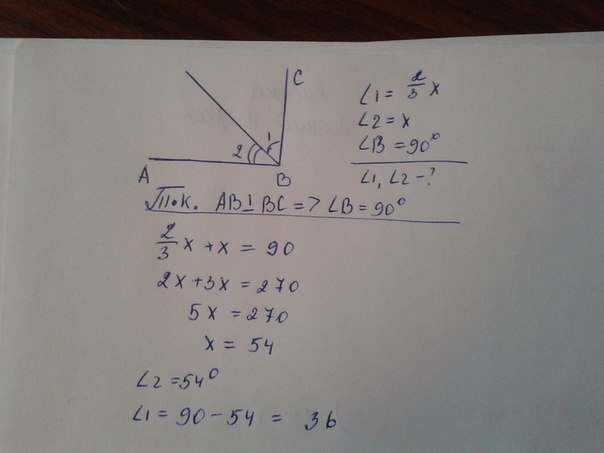 C
1
2
A
B
∠1 = 2/3 x
∠2 = x
∠B = 90°
∠1, ∠2 - ?
П.к. AB ⊥ BC => ∠B = 90°
2/3 x + x = 90
2x + 3x = 270
5x = 270
x = 54
∠2 = 54°
∠1 = 90 - 54 = 36